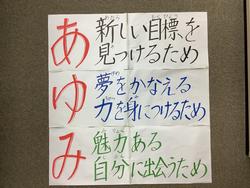 あ 新しい目標を
見つけるため
ゆ 夢をかなえる
力を身につけるため
み 魅力ある
自分に出会うため